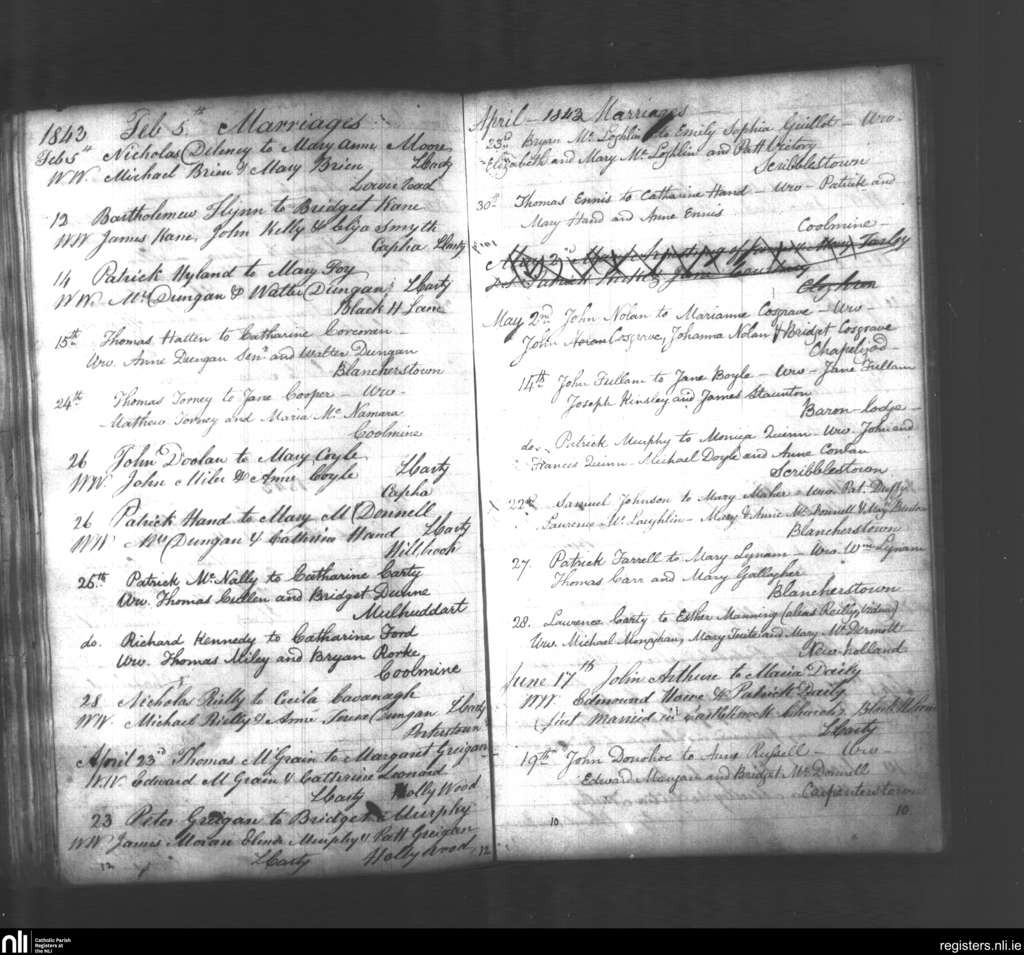 1843 Feb 5th Marriages
Feb 5th Nicholas Deleney to Mary Anne Moore
WW Michael Brien & Mary Brien LCarty
Lower road
12 Bartholemew Flynn to Bridget Kane
WW James Kane, John Kelly & Elza Smyth
Capha LCarty
14 Patrick Hyland to Mary Foy
WW Mr Dungan & Walter Dungan LCarty
Black H Lane
15th Thomas Hatten to Catharine Corcoran -
Ww. Anne Dungan Senr and Walter Dungan
Blancherstown
24th Thomas Torney to Jane Cooper - Ww.
Mathew Torney and Maria Mc Namara
Coolmine
26 John Doolan to Mary Coyle
WW John Miler & Anne Coyle LCarty
Capha
26 Patrick Hand to Mary McDonnell
WW Mrs Dungan & Catherine Hand LCarty
Hillbrook
26th Patrick Mc Nally to Catharine Carty
Ww. Thomas Cullen and Bridget Devine
Mulhuddart
do. Richard Kennedy to Catharine Ford
Ww. Thomas Miley and Bryan Rorke
Coolmine
28 Nicholas Rielly to Cecila Cavanagh
WW Michael Rielly & Anne Dungan LCarty
Porterstown
April 23d Thomas McGrain to Margaret Greigan
WW Edward McGrain & Catherine Leonard
LCarty Holly Wood
23 Peter Greigan to Bridget Murphy
WW James Moran Elenor Murphy & Patt Greigan
LCarty Hollywood
12
12
April - 1843 Marriages
23rd Bryan Mc Loghlin to Emily Sophia Guillot - Ww.
Elizabeth and Mary Mc Loghlin and Patt Victory
Scribblestown
30th Thomas Ennis to Catharine Hand - Ww - Patrick and
Mary Hand and Anne Ennis
Coolmine -
May 2nd John Nolan to Marianne Cosgrave - Ww -
John Cosgrave, Johanna Nolan & Bridget Cosgrave
Chapelizod
14th John Fullam to Jane Boyle - Ww - Jane Fullam
Joseph Kinsley and James Staunton
Baron-lodge -
do. Patrick Murphy to Monica Quinn - Ww. John and
Frances Quinn - Michael Doyle and Anne Conlan
Scribblestown
22nd Samuel Johnson to Mary Maher - Ww. Pat. Duffy
Laurence Mc Laughlin - Mary & Annie Mc Donnell & Mary
Blancherstown
27 Patrick Farrell to Mary Lynam - Ww. Wm Lynam
Thomas Carr and Mary Gallagher
Blancherstown
28. Lawrence Carty to Esther Manning (alias Reilly, Widow)
Ww. Michael Monaghan, Mary Tuite and Mary Mc Dermott
New-holland
June 17th John Arthure to Maria Daily
WW Edmound Howe & Patrick Daily
(first married in Castleknock Church) Black H Lane
LCarty
19th John Donohoe to Anne Russell - Ww -
Edward Mangan and Bridget Mc Donnell
Carpenterstown
10
10
nli
Catholic Parish
Registers at
the NLI
registers.nli.ie